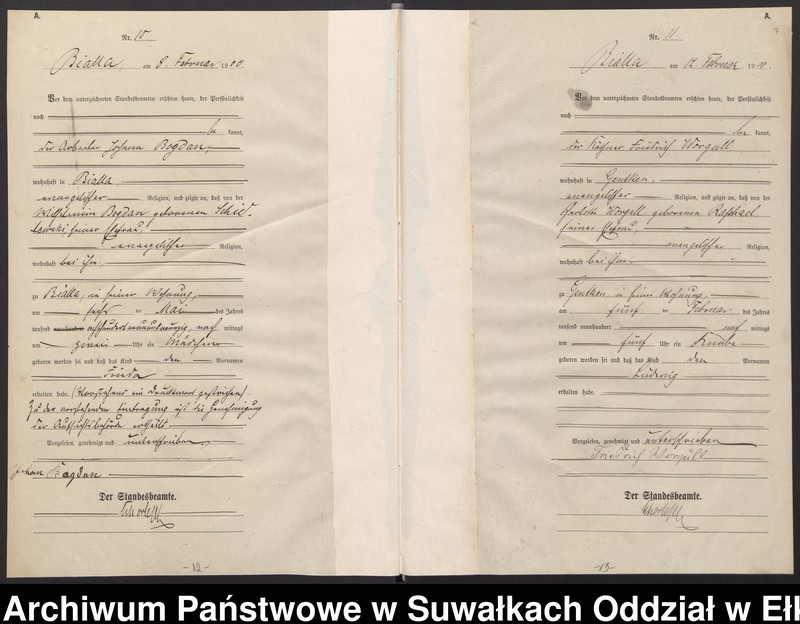 A.
Nr. 10
Bialla, am 8. Februar 1900.
Vor dem unterzeichneten Standesbeamten erschien heute, der Persönlichkeit
nach
kannt,
der Arbeiter Johann Bogdan,
wohnhaft in Bialla
evangelischer Religion, und zeigte an, daß von der
Wilhelmine Bogdan geborenen
seiner Ehefrau,
evangelischer Religion,
wohnhaft bei ihm,
zu Bialla, in seiner Wohnung,
am ten Mai des Jahres
tausend achthundertneunundneunzig, nach mittags
um Uhr ein Mädchen
geboren worden sei und daß das Kind den Vornamen
Frieda
erhalten habe. (Vorstehend ein Druckwort gestrichen).
Zu der vorstehenden Eintragung ist die Genehmigung
der Aufsichtsbehörde erteilt.
Vorgelesen, genehmigt und unterschrieben
Johann Bogdan
Der Standesbeamte.
-12-
A.
7
Nr. 11
Bialla am 12. Februar 1900.
Vor dem unterzeichneten Standesbeamten erschien heute, der Persönlichkeit
nach
be kannt,
der Käthner Friedrich Worgull
wohnhaft in Gentken,
evangelischer Religion, und zeigte an, daß von der
Worgull geborenen Raphael,
seiner Ehefrau,
evangelischer Religion,
wohnhaft bei ihm
zu Gentken, in seiner Wohnung,
am fünf ten Februar des Jahres
tausend neunhundert mittags
um fünf Uhr ein Knabe
geboren worden sei und daß das Kind den Vornamen
Ludwig
erhalten habe.
Vorgelesen, genehmigt und unterschrieben
Friedrich Worgull
Der Standesbeamte.
-13-
Archiwum Państwowe w Suwałkach Oddział w Ełk